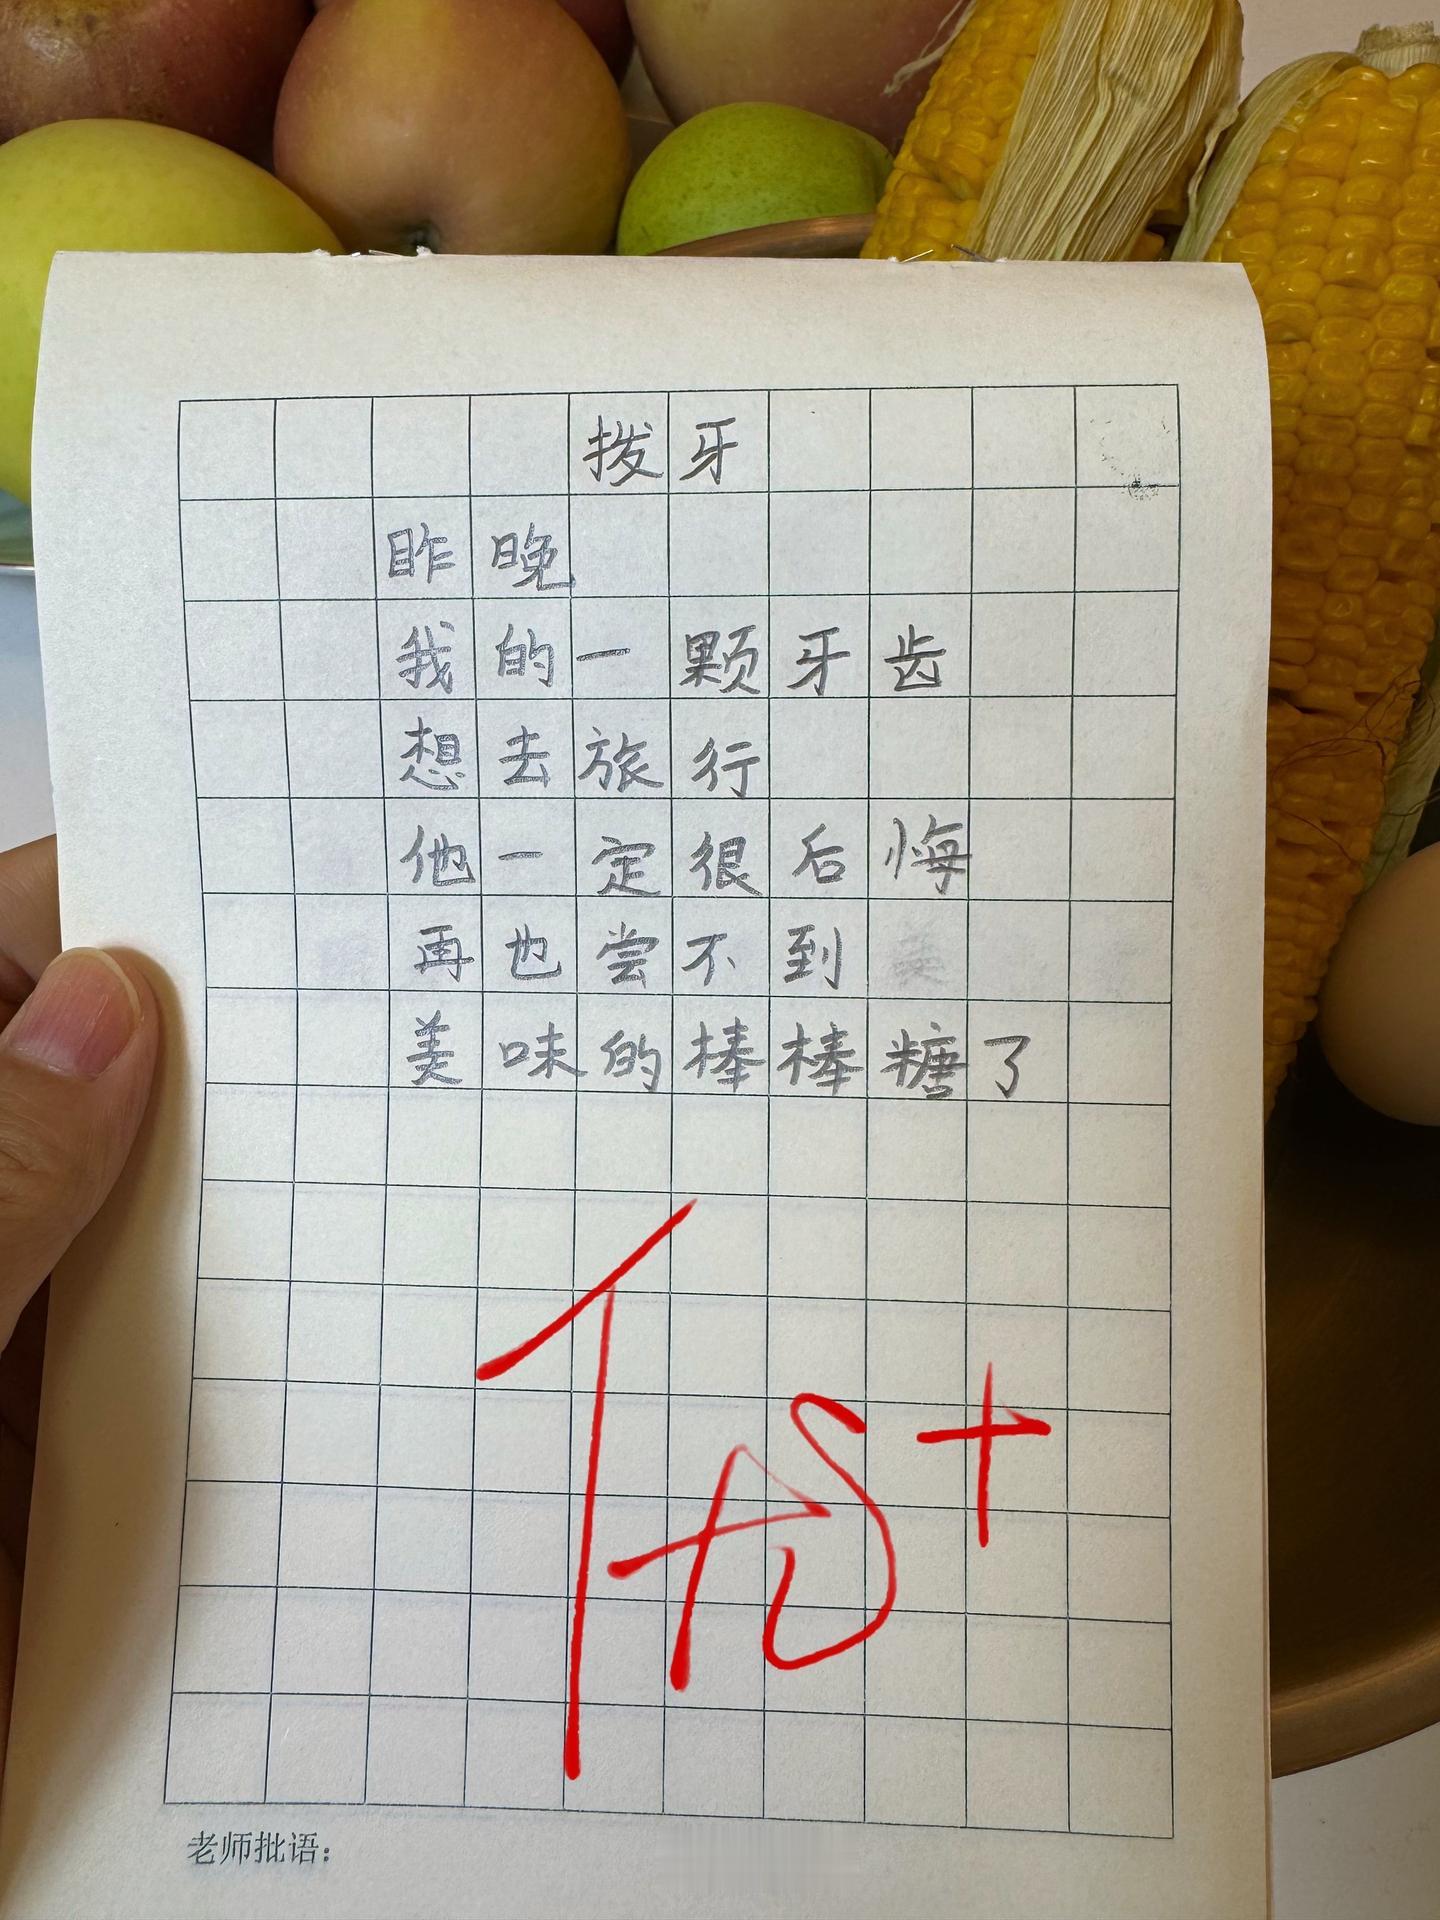 拨牙
昨晚
我的一颗牙齿
想去旅行
他一定很后悔
再也尝不到
美味的棒棒糖了
老师批语：